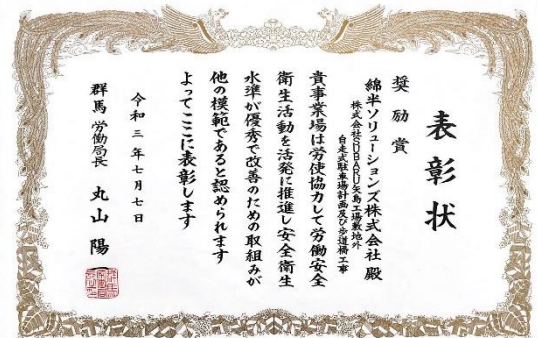 表彰状
奨励賞
綿半ソリューションズ株式会社 殿
株式会社SUBARU矢島工場敷地外
自走式駐車場計画及び歩道橋工事
貴事業場は労使協力して労働安全
衛生活動を活発に推進し安全衛生
水準が優秀で改善のための取組みが
他の模範であると認められます
よってここに表彰します
令和三年七月七日
群馬労働局長 丸山陽